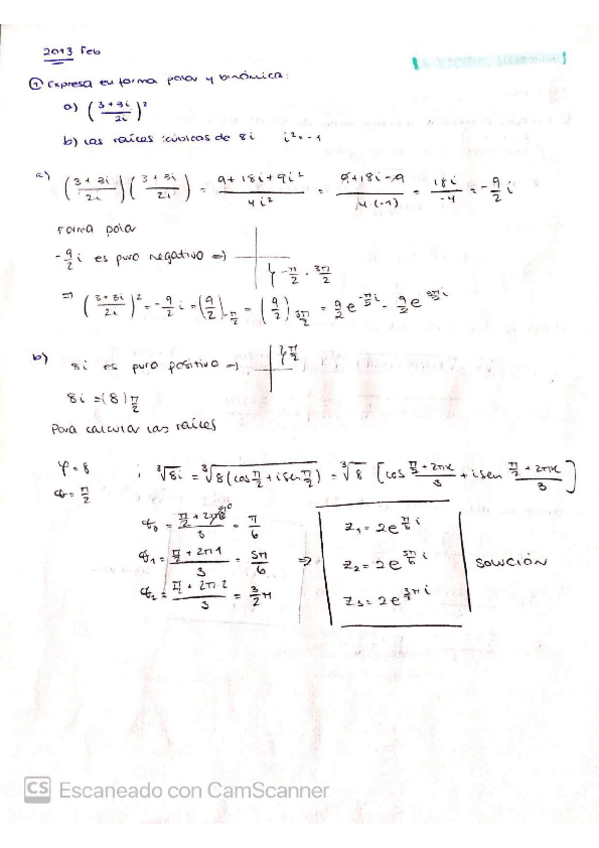 2013 Feb
① Expresa en forma polar y binómica:
a) ((3+3i)/2i)²
b) Las raíces cúbicas de 8i i²=-1
a) ((3+3i)/2i)((3+3i)/2i) = (9+18i+9i²)/4i² = (9+18i-9)/4(-1) = 18i/-4 = -9/2 i
Forma polar
-9/2 i es puro negativo => -π/2 = 3π/2
=> ((3+3i)/2i)² = -9/2 i = (9/2)_-π/2 = (9/2)_3π/2 = 9/2 e^(-π/2 i) = 9/2 e^(3π/2 i)
b) 8i es puro positivo => π/2
8i = (8)π/2
Para calcular las raíces
r=8 ; ³√8i = ³√8(cos π/2 + i sen π/2) = ³√8 [cos (π/2+2πk)/3 + i sen (π/2+2πk)/3]
φ=π/2
φ₀ = (π/2+2π·0)/3 = π/6
φ₁ = (π/2+2π·1)/3 = 5π/6 =>
φ₂ = (π/2+2π·2)/3 = 3/2 π
Z₁ = 2e^(π/6 i)
Z₂ = 2e^(5π/6 i) SOLUCIÓN
Z₃ = 2e^(3/2 π i)
CS Escaneado con CamScanner